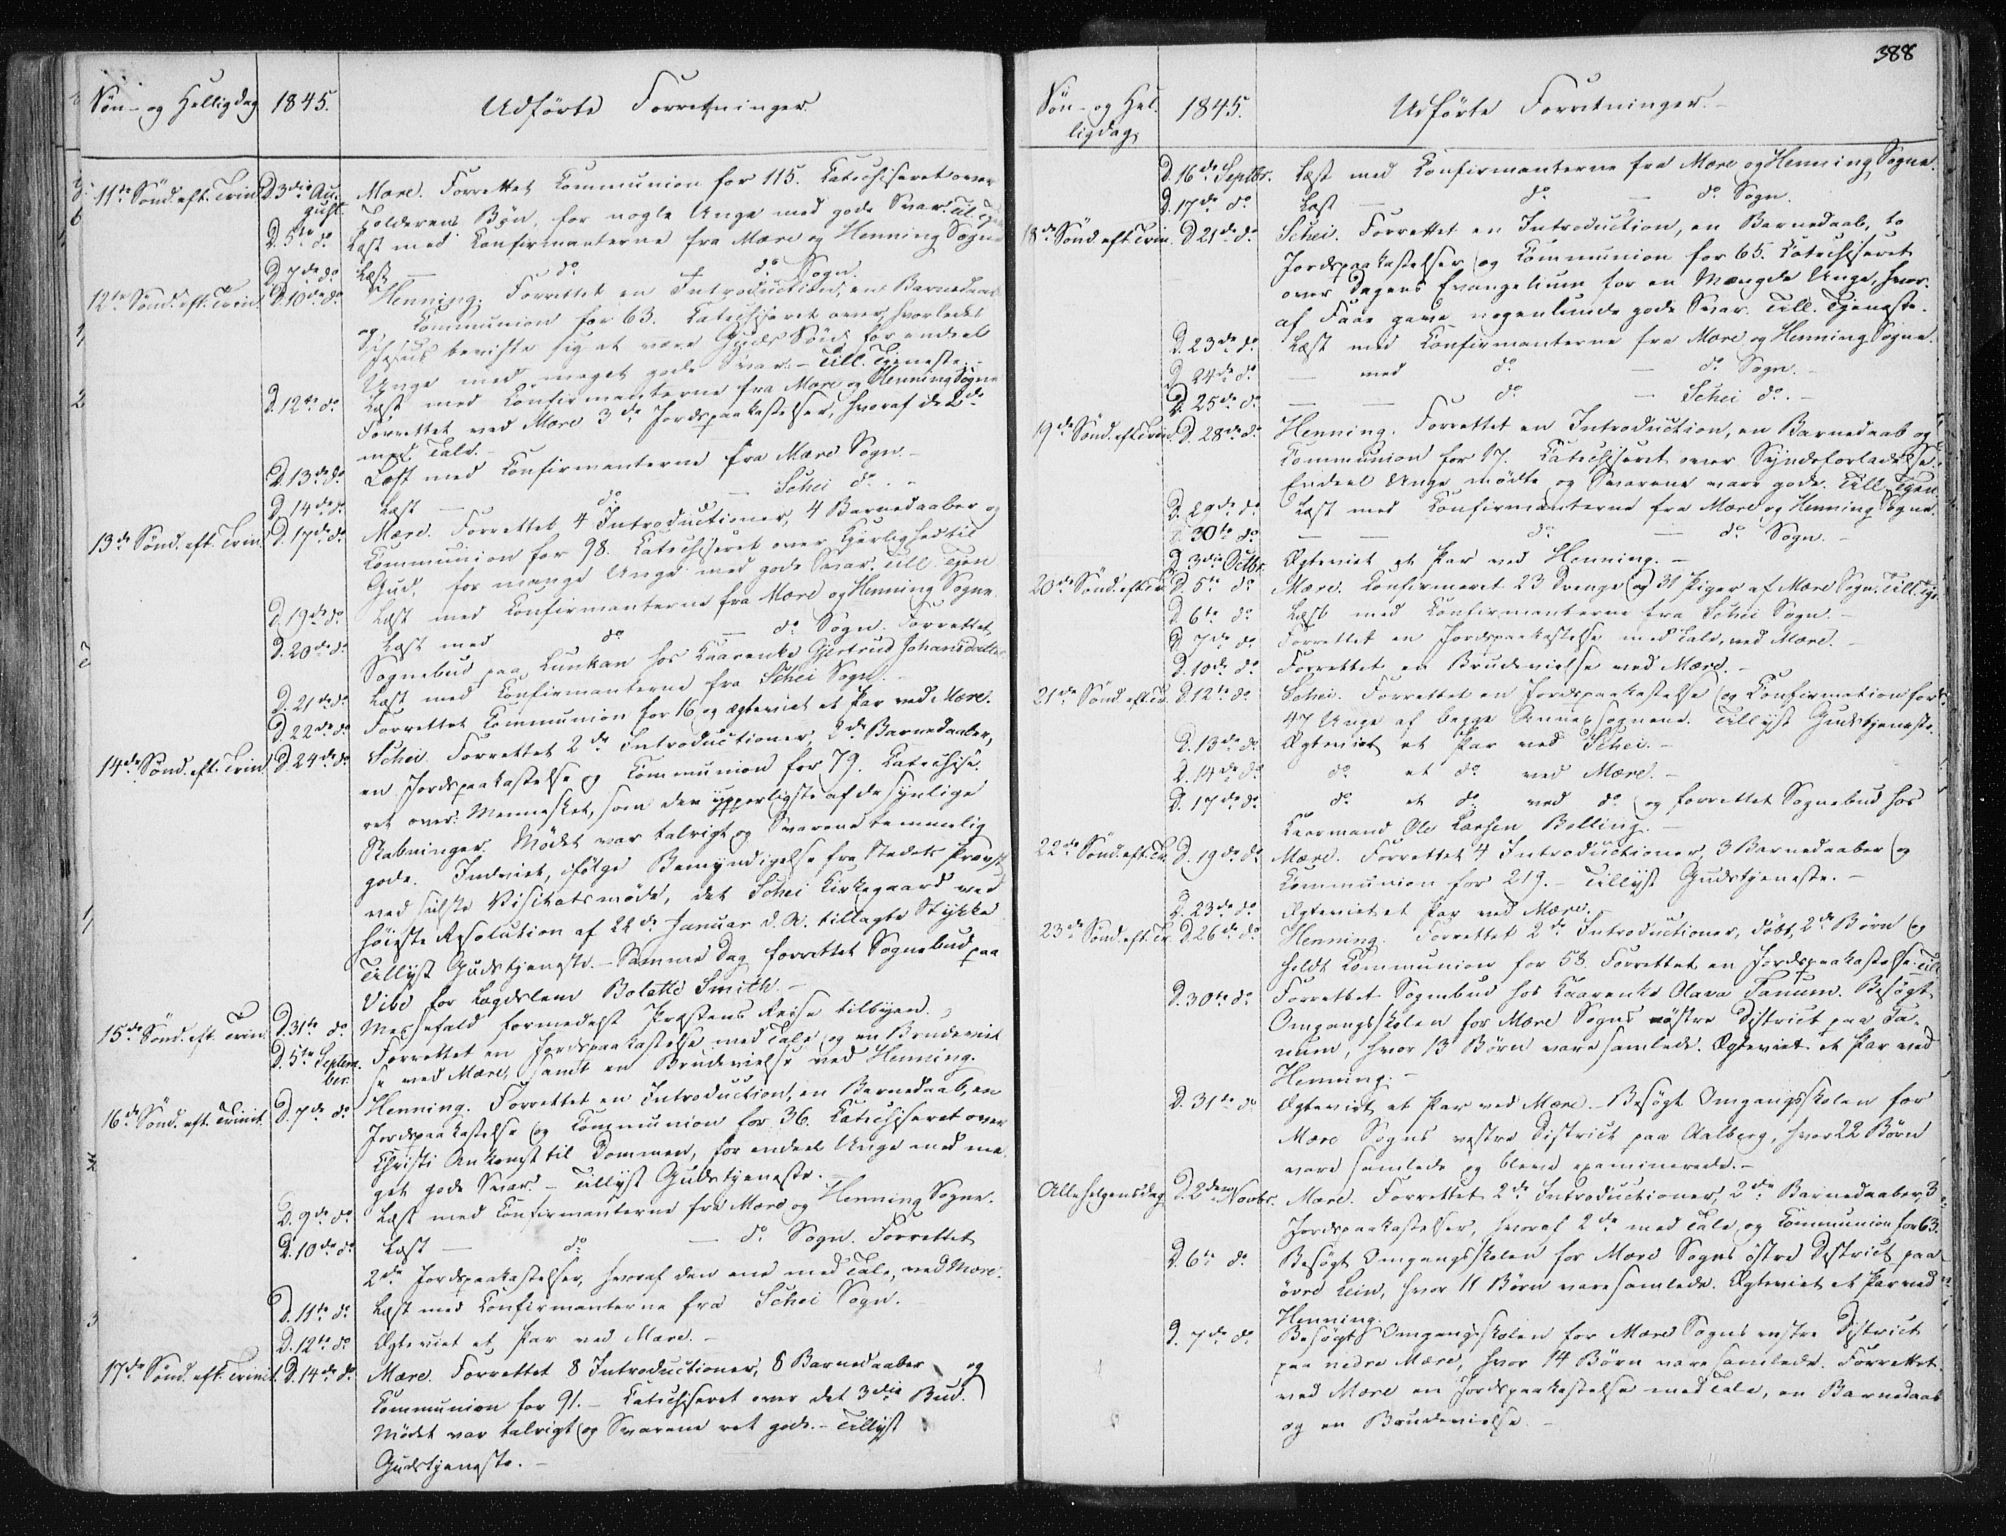 388
Søn- og Helligdag 1845. Udførte Forretninger
11te Sønd. eft. Trinit. D. 3die Au- Mære. Forrettet Communion for 115. Catechiseret over
gust Tolderens Bøn, for nogle Unge med gode Svar. Til. Tjen.
D. 5te do Læst med Confirmanterne fra Mære og Henning Sogne
D. 7de do Læst — do — do Sogn.
12te Sønd. eft. Trinit. D. 10de do Henning. Forrettet en Introduction, en Barnedaab
og Communion for 63. Catechiseret over, hvorledes
Jesus beviste sig at være Guds Søn, for endeel
Unge med meget gode Svar. – Till. Tjeneste. –
D. 12te do Læst med Confirmanterne fra Mære og Henning Sogne
Forrettet ved Mære 3de Jordspaakastelser, hvoraf de 2de
med Tale. –
D. 13de do Læst med Confirmanterne fra Mære Sogn. –
D. 14de do Læst — do — Schei do. –
13de Sønd. eft. Trin. D. 17de do Mære. Forrettet 4 Introductioner, 4 Barnedaaber og
Communion for 98. Catechiseret over Kjerlighed til
Gud, for mange Unge med gode Svar. Till. Tjen
D. 19de do Læst med Confirmanterne fra Mære og Henning Sogne
D. 20de do Læst med do — do Sogn. Forrettet
Sognebud paa Lunkan hos Kaarenke Gjertrud Johansdatter
D. 21de do Læst med Confirmanterne fra Schei Sogn. –
D. 22de do Forrettet Communion for 16 og Ægteviet et Par ved Mære.
14de Sønd. eft. Trinit. D. 24de do Schei. Forrettet 2de Introductioner, 2de Barnedaaber,
en Jordspaakastelse og Communion for 79. Catechise-
ret over: Mennesket, som den ypperligste af de synlige
Skabninger. Mødet var talrigt og Svarene temmelig
gode. Indviet, ifølge Bemyndigelse fra Stedets Provst
ved sidste Visitatsmøde, det Schei Kirkegaard ved
høieste Resolution af 22de Januar d. A. tillagte Stykke
Tillyst Gudstjeneste. – Samme Dag forrettet Sognebud paa
Vibe for Lægdslem Bolette Smith. –
15de Sønd. eft. Trin. D. 31te do Messefald formedelst Præstens Reise tilbyen.
D. 5te Septem- Forrettet en Jordspaakastelse med Tale og en Brudeviel
ber. se ved Mære, samt en Brudevielse ved Henning.
16de Sønd. eft. Trinit. D. 7de do Henning. Forrettet en Introduction, en Barnedaab, en
Jordspaakastelse og Communion for 36. Catechiseret over
Christi Ankomst til Dommen, for endeel Unge med me-
get gode Svar. – Tillyst Gudstjeneste. –
D. 9de do Læst med Confirmanterne fra Mære og Henning Sogne.
D. 10de do Læst — do — do Sogn. Forrettet
2de Jordspaakastelser, hvoraf den ene med Tale, ved Mære.
D. 11te do Læst med Confirmanterne fra Schei Sogn.
D. 12te do Ægteviet et Par ved Mære. –
17de Sønd. eft. Trinit. D. 14de do Mære. Forrettet 8 Introductioner, 8 Barnedaaber og
Communion for 91. – Catechiseret over det 3die Bud.
Mødet var talrigt og Svarene ret gode. – Tillyst
Gudstjeneste. –
Søn- og Hel- 1845. Udførte Forretninger. –
ligdag
D. 16de Septbr. Læst med Confirmanterne fra Mære og Henning Sogne.
D. 17de do Læst — do — do Sogn.
18de Sønd eft Trin. D 21de do Schei. Forrettet en Introduction, en Barnedaab, to
Jordspaakastelser og Communion for 65. Catechiseret
over Dagens Evangelium for en Mængde Unge, hvor-
af Faae gave nogenlunde gode Svar. Till. Tjeneste.
D. 23de do Læst med Confirmanterne fra Mære og Henning Sogne.
D 24de do — med do — do Sogn. –
D. 25de do — — do — Schei do. –
19de Sønd. eft Trin. D. 28de do Henning. Forrettet en Introduction, en Barnedaab og
Communion for 17. Catechiseret over Syndsforladelse.
Endeel Unge mødte og Svarene vare gode. Till. Tjen.
D. 29de do Læst med Confirmanterne fra Mære og Henning Sogne.
D. 30te do — — do — do Sogn. –
D. 3die Octbr. Ægteviet et Par ved Henning. –
20de Sønd. eft Tr. D. 5te do Mære. Confirmeret 23 Drenge og 31 Piger af Mære Sogn. Till. Tje.
D. 6te do Læst med Confirmanterne fra Schei Sogn. –
D 7de do Forrettet en Jordspaakastelse med Tale, ved Mære. –
D. 10de do Forrettet en Brudevielse ved Mære. –
21de Sønd. eft Tr. D. 12te do Schei. Forrettet en Jordspaakastelse og Confirmation for
47 Unge af begge Annexsognene. Tillyst Gudstjeneste.
D. 13de do Ægteviet et Par ved Schei. –
D. 14de do do et do ved Mære. –
D. 17de do do et do ved do og forrettet Sognebud hos
Kaarmand Ole Larsen Bolling. –
22de Sønd. eft. Tr. D. 19de do Mære. Forrettet 4 Introductioner, 3 Barnedaaber og
Communion for 219. – Tillyst Gudstjeneste. –
D. 23de do Ægteviet et Par ved Mære. –
23de Sønd. eft. Tr. D. 26de do Henning. Forrettet 2de Introductioner, døbt 2de Børn og
holdt Communion for 58. Forrettet en Jordspaakastelse. Till
D. 30te do Forrettet Sognebud hos Kaarenke Olava Tanum. Besøgt
Omgangsskolen for Mære Sogns østre District paa Ta-
num, hvor 13 Børn vare samlede. Ægteviet et Par ved
Henning. –
D. 31te do Ægteviet et Par ved Mære. – Besøgt Omgangsskolen for
Mære Sogns vestre District paa Aalberg, hvor 22 Børn
vare samlede og bleve examinerede. –
Allehelgensdag D. 2den Novbr. Mære. Forrettet 2de Introductioner, 2de Barnedaaber, 3
Jordspaakastelser, hvoraf 2de med Tale, og Communion for 63.
D. 6te do Besøgt Omgangsskolen for Mære Sogns østre District paa
øvre Lein, hvor 11 Børn vare samlede. Ægteviet et Par ved
Henning.
D. 7de do Besøgt Omgangsskolen for Mære Sogns vestre District
paa nedre Mære, hvor 14 Børn vare samlede. Forrettet
ved Mære en Jordspaakastelse med Tale, en Barnedaab
og en Brudevielse. –